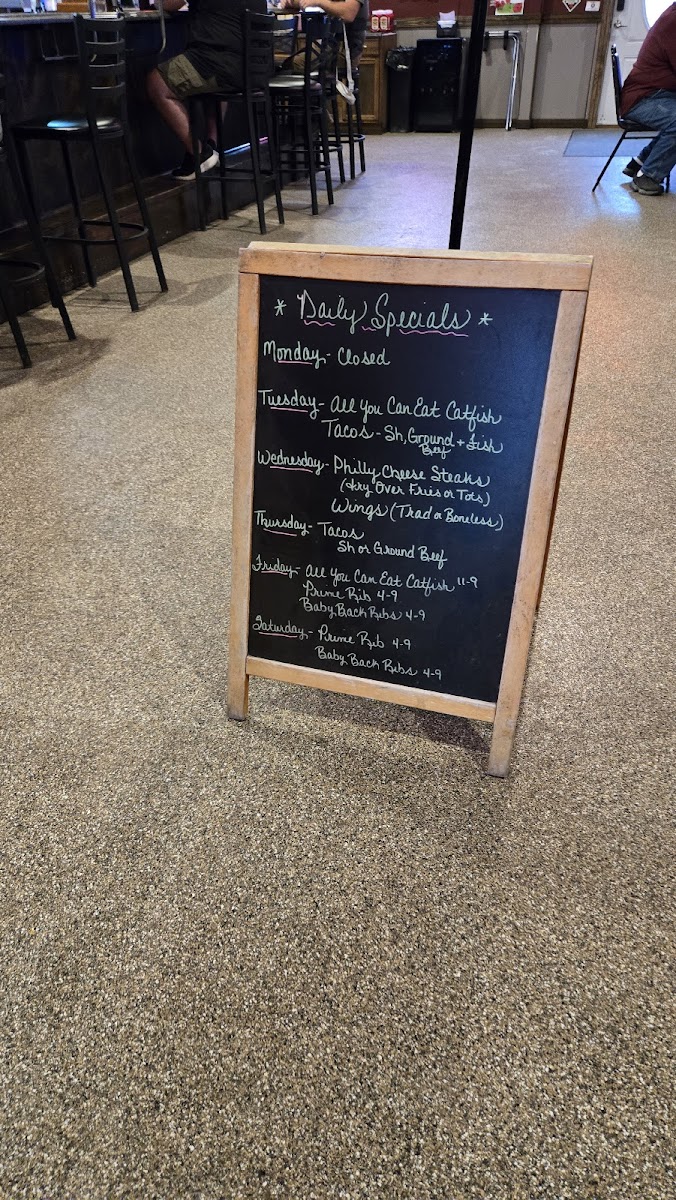 * Daily Specials *
Monday - Closed
Tuesday - All You Can Eat Catfish
Tacos - Sh, Ground + Fish
Beef
Wednesday - Philly Cheese Steaks
(try Over Fries or Tots)
Wings (Trad or Boneless)
Thursday - Tacos
Sh or Ground Beef
Friday - All You Can Eat Catfish 11-9
Prime Rib 4-9
Baby Back Ribs 4-9
Saturday - Prime Rib 4-9
Baby Back Ribs 4-9